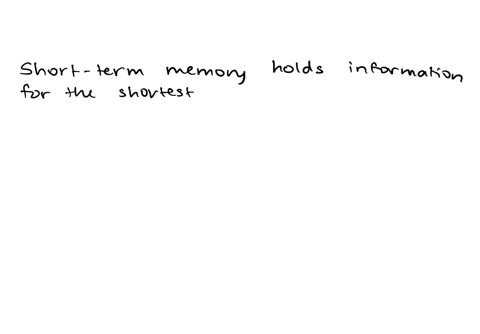 Short-term memory holds information
for the shortest